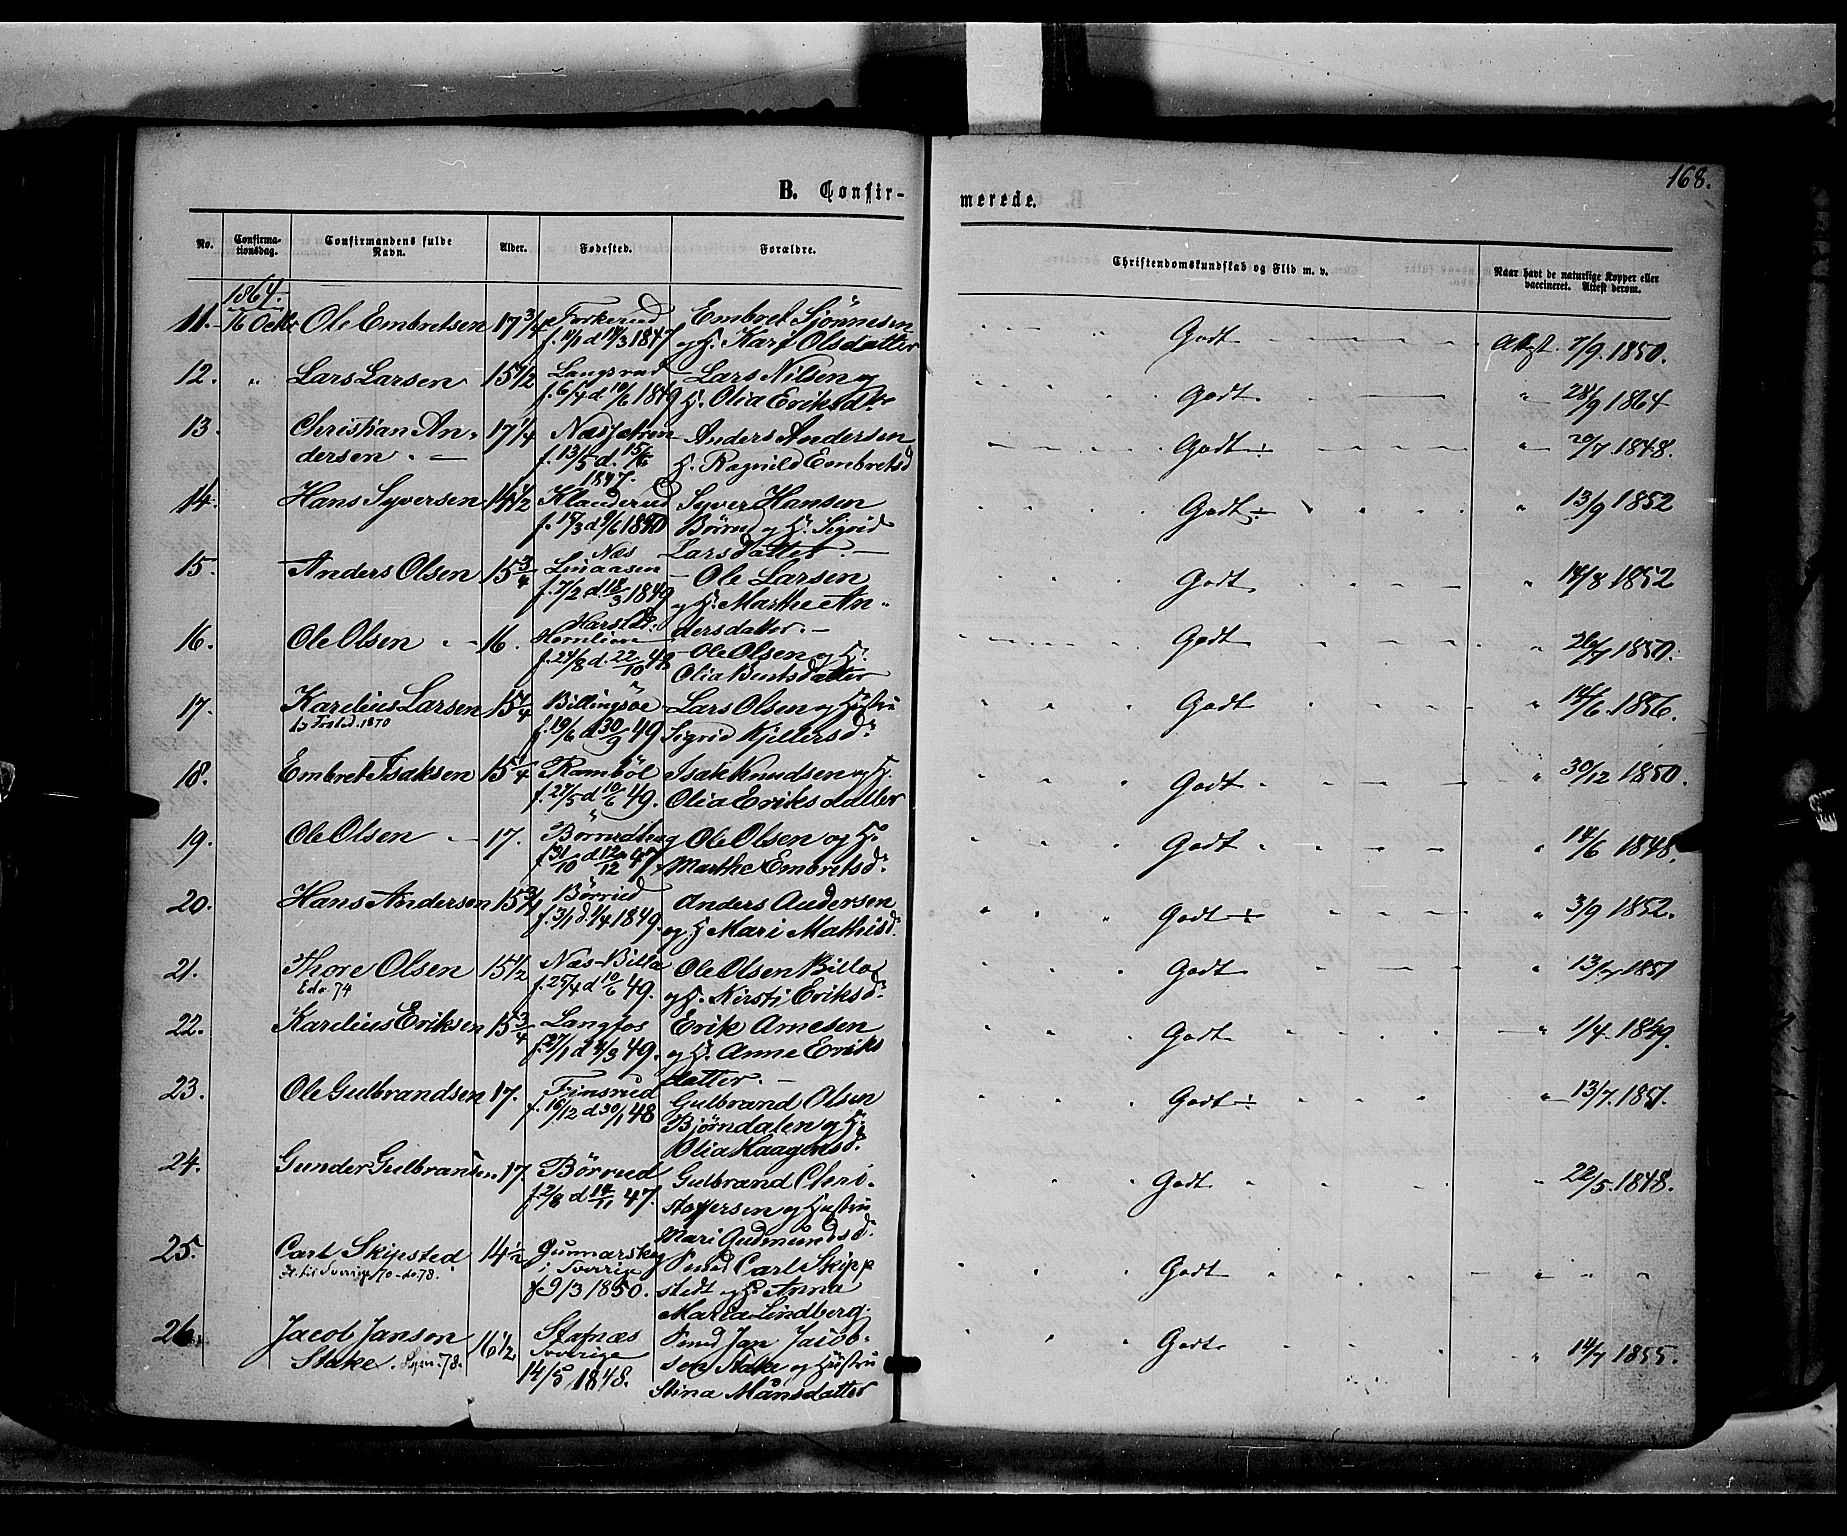 168.
B. Confir-
merede.
No.
Confirma-
tionsdag.
Confirmandens fulde
Navn.
Alder.
Fødested.
Forældre.
Christendomskundskab og Flid m. v.
Naar havt de naturlige Kopper eller
vaccineret. Attest derom.
1864.
11. 16 Octbr Ole Embretsen 17 3/4 Torkerud Embret Sjønnesen Godt Attst. 7/9. 1850.
1847 og H. Kari Olsdatter
12. " Lars Larsen 15 1/2 Langsrud Lars Nilsen og Godt " 28/9 1864
f. 6/4 d. 10/6 1849 H. Olia Eriksdr
13. Christian An- 17 1/4 Anders Andersen Godt ÷ " 20/7 1848.
dersen. f. 13/5 d. H. Ragnild Embretsd
1847.
14. Hans Syversen 14 1/2 Klanderud Syver Hansen Godt ÷ " 13/9 1852
Børrud og H. Sigrid
Næs Larsdatter.
15. Anders Olsen 15 3/4 Linaasen Ole Larsen Godt " 14/8 1852
f. 7/2 d. 18/3 1849 og H. Marthe An-
dersdatter.
16. Ole Olsen 16. Hornlien Ole Olsen og H. Godt " 26/7 1850.
f. 24/8 d. 22/10 48 Olia Berntsdatter
17. Karelius Larsen 15 1/4 Billingsøe Lars Olsen og Hustru Godt " 14/6. 1856.
1870 f. 19/6 d 30/9 49 Sigrid Kjeldersdr
18. Embret Isaksen 15 1/4 Rambøl Isak Knudsen og H. Godt " 30/12 1850.
f. 27/5 d 10/6 49. Olia Eriksdatter
19. Ole Olsen 17. Ole Olsen og H. Godt " 14/6 1848.
f. 31/10 d 12/12 47. Marthe Embretsd.
20. Hans Andersen 15 3/4 Børrud Anders Andersen Godt ÷ " 3/9 1852.
f. 3/1 d. 1/4 1849. og H Mari Mathisdr
21. Thore Olsen 15 1/2 Næs-Billa Ole Olsen Billa Godt " 13/7 1851
74 f. 25/4 d 10/6 49. og H. Kirsti Eriksdr
22. Karelius Eriksen 15 3/4 Langfos Erik Arnesen Godt " 1/4 1849.
f. 27/1 d 4/3 49. og H. Anne Eriks
datter.
23. Ole Gulbrandsen 17. Finsrud Gulbrand Olsen Godt ÷ " 13/7. 1851.
f. 16/12 d. 30/1 48 Bjørndalen og H.
Olia Haagensd.
24. Gunder Gulbransen 17. Børrud Gulbrand Chri- Godt " 22/5. 1848.
f. 2/8 d 14/11 47. stoffersen og Hustru
Mari Gudmundsdr
25. Carl Skipsted 14 1/2 Gunnarskog Carl Skipp Godt " " "
til Sverige 78. i Sverige stedt og H. Anna
f 9/3 1850. Maria Lindberg.
26. Jacob Jansen 16 1/2 Stafnæs Jan Jacob- Godt " 14/7 1855.
Stake. 78. Sverige sen Stake og Hustru
14/5 1848. Stina Månsdatter